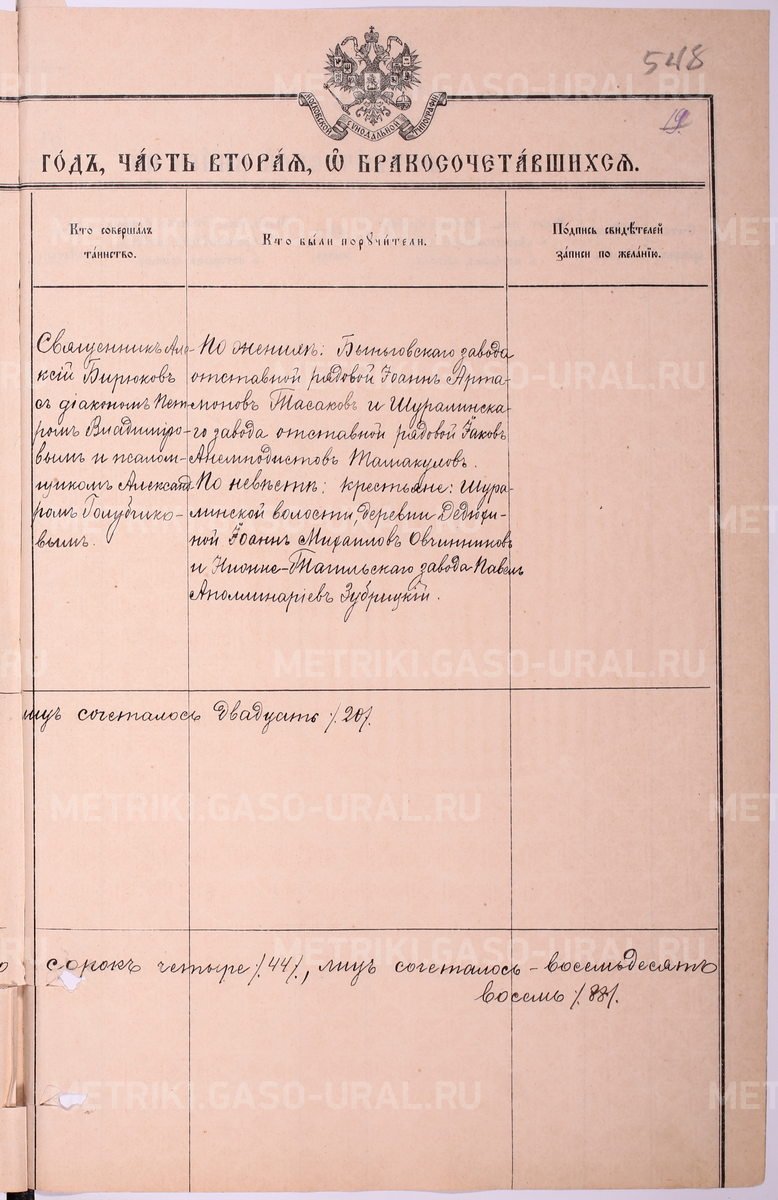 548
19
МОСКОВСКОЙ СѴНОДАЛЬНОЙ ТИПОГРАФІИ
ГО́ДЪ, ЧА́СТЬ ВТОРА́Ѧ, Ѿ БРАКОСОЧЕТА́ВШИХСѦ.
Кто совершáлъ
тáинство.
Кто бы́ли порꙋчи́тели.
По́дпись свидѣ́телей
зáписи по желáнїю.
Священникъ Але-
ксій Бирюковъ
съ діакономъ Пет-
ромъ Владиміро-
вымъ и псалом-
щикомъ Александ-
ромъ Голубчико-
вымъ.
По женихѣ: Быньговскаго завода
отставной рядовой Іоаннъ Арта-
моновъ Тасаковъ и Шуралинска-
го завода отставной рядовой Іаковъ
Анемподистовъ Ташкуловъ.
По невѣстѣ: крестьяне: Шура-
линской волости, деревни Дедюфи-
ной Іоаннъ Михаиловъ Овчинниковъ
и Нижне-Тагильскаго завода Павелъ
Аполлинаріевъ Зубрицкій.
лицъ сочеталось двадцать /.20/.
сорокъ четыре /.44/., лицъ сочеталось - восемьдесятъ
восемь /.88/.
METRIKI.GASO-URAL.RU